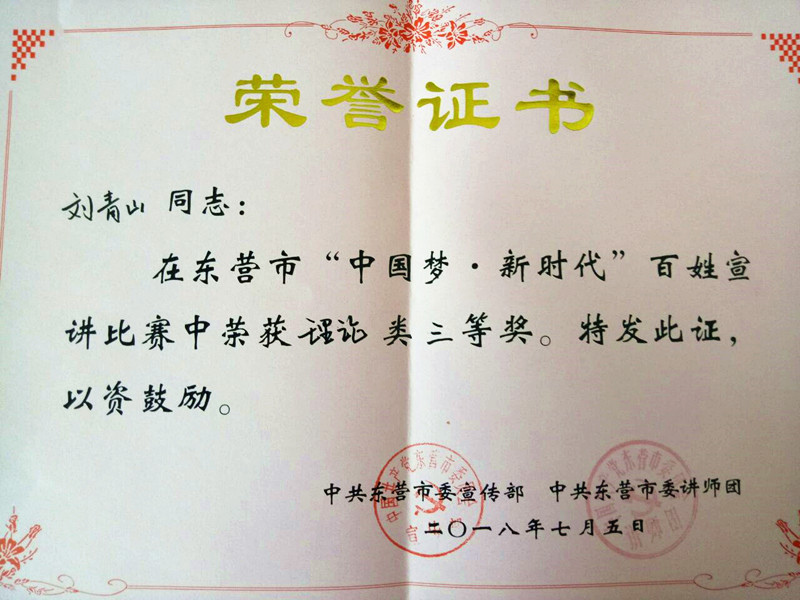 荣誉证书
刘青山 同志：
在东营市“中国梦·新时代”百姓宣
讲比赛中荣获理论类三等奖。特发此证，
以资鼓励。
中共东营市委宣传部 中共东营市委讲师团
二〇一八年七月五日
中国共产党东营市委